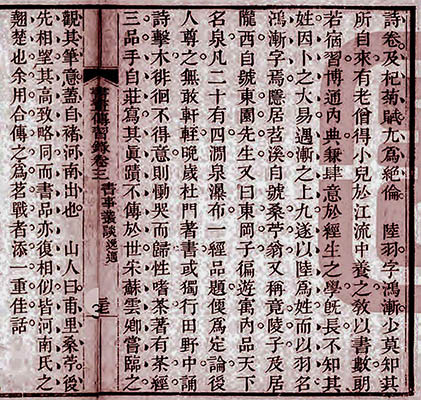 詩卷及杞菊賦尤為絕倫　陸羽字鴻漸少莫知其
所自來有老僧得小兒於江流中養之教以書數朝
若宿習博通內典兼肆意於經生之學旣長不知其
姓因卜之大易遇漸之上九遂以陸為姓而以羽名
鴻漸字焉隱居苕溪自號桑苧翁又稱竟陵子及居
隴西自號東園先生又曰東岡子偏遊寓內品天下
名泉凡二十有四澗泉瀑布一經品題便為定論後
人尊之無敢軒輊晚歲杜門著書或獨行田野中誦
詩擊木徘徊不得意則慟哭而歸性嗜茶著有茶經
三品手自莊為其眞蹟不傳於世朱蘇雲卿嘗臨之
書畫傳習錄卷三　書事叢談逸遁
觀其筆意蓋自褚河南出也　山人曰甫里桑苧後
先相望其高致略同而書品亦復相似皆河南氏之
翹楚也余用合傳之為茗戰者添一重佳話